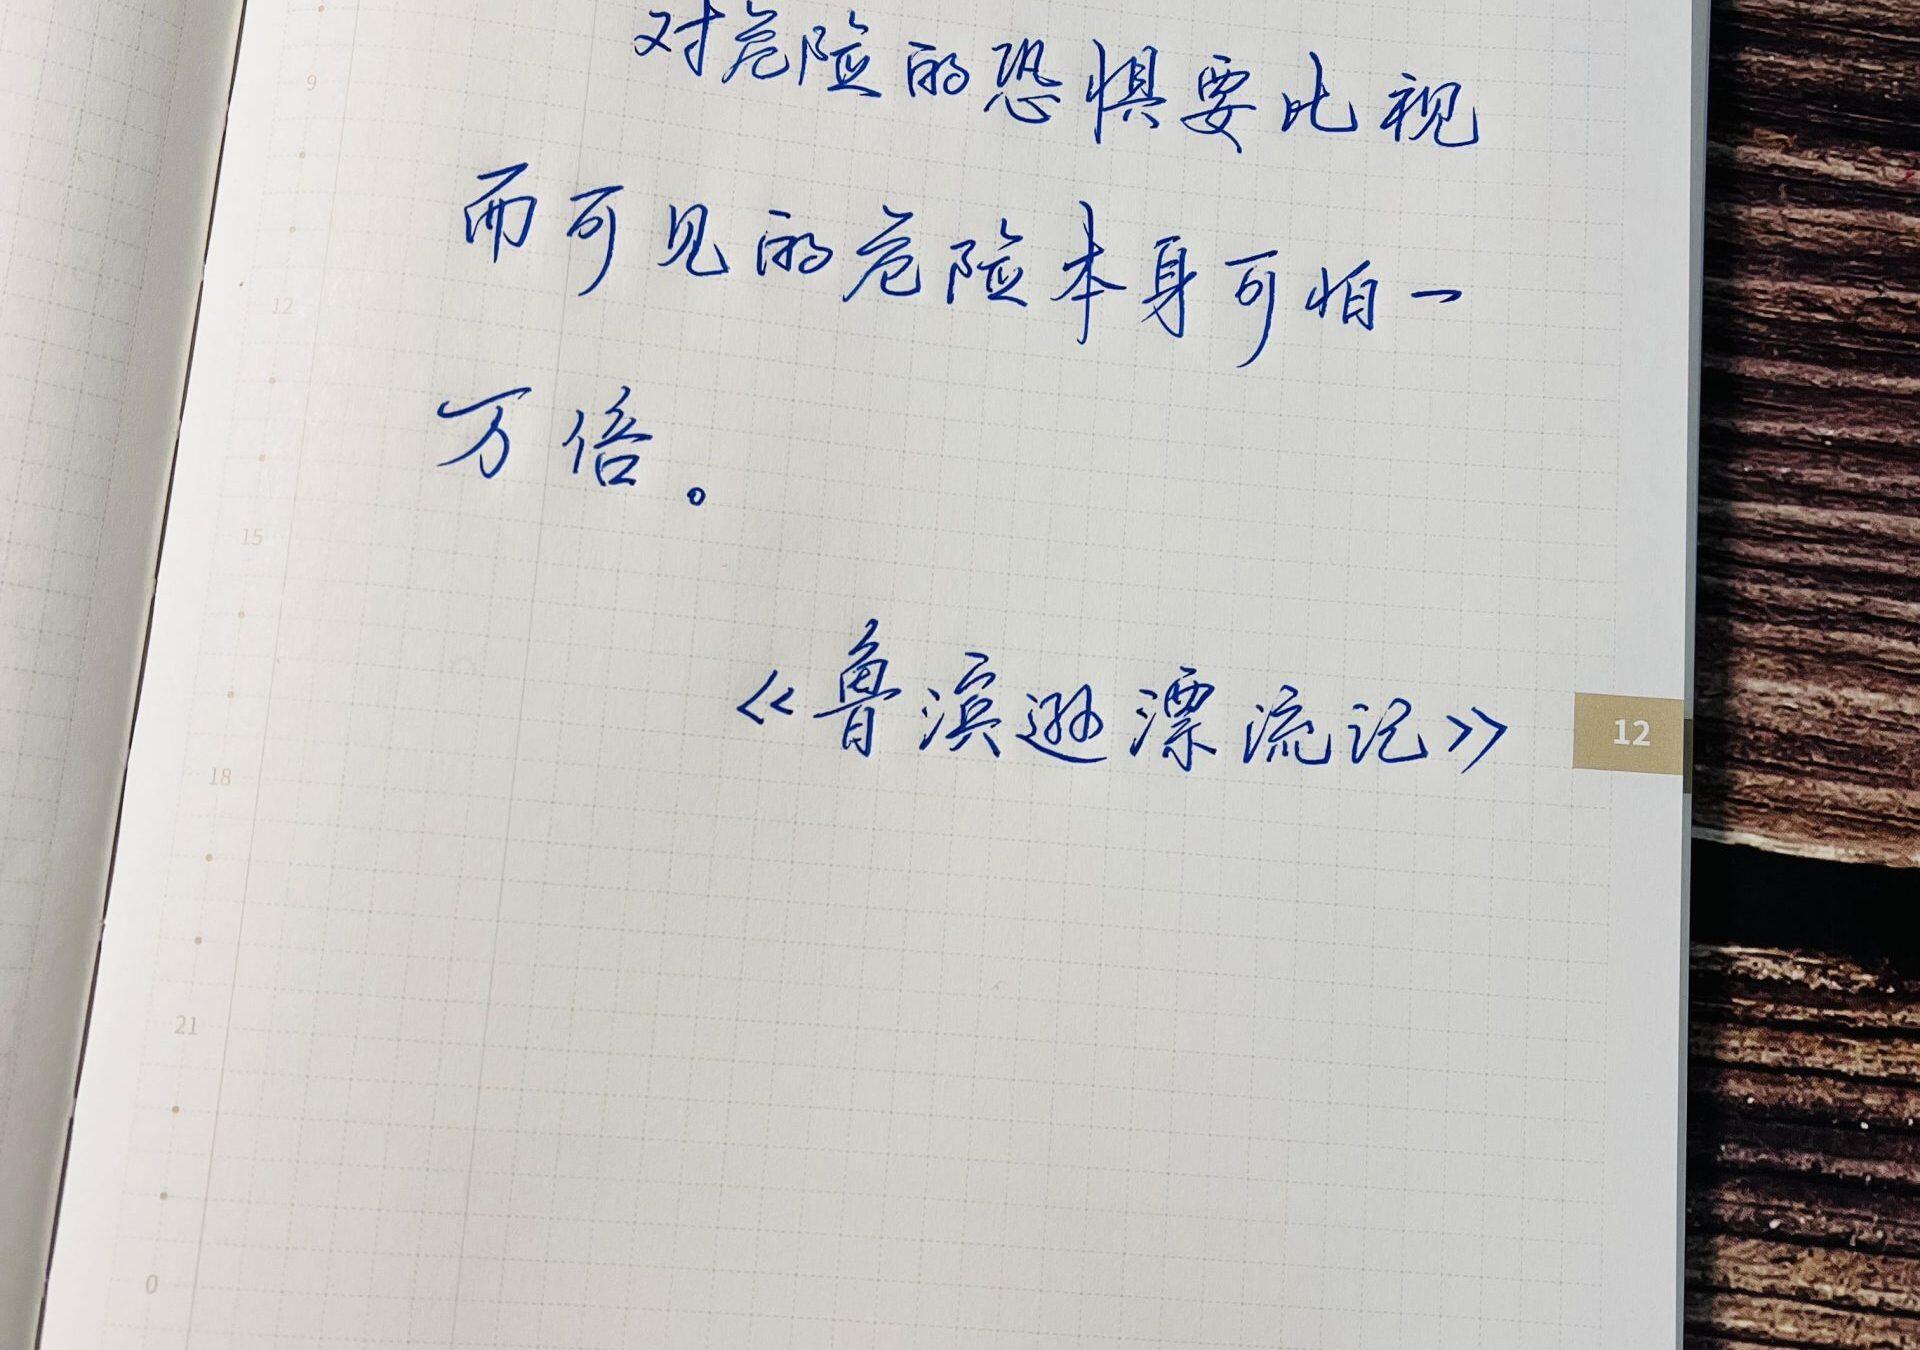 对危险的恐惧要比视
而可见的危险本身可怕一
万倍。
《鲁滨逊漂流记》
9
12
15
18
21
0
12